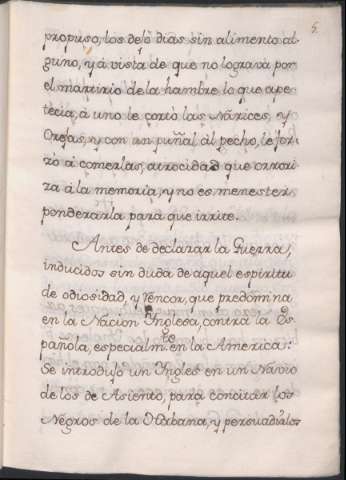 5.
propuso, los dejó dias sin alimento al-
guno, y á vista de que no lograva por
el martirio de la hambre lo que ape-
tecia, à uno le cortò las Nàrices, y
Orejas, y con un puñal àl pecho, le for-
zò à comerlas, atrocidad que orrori-
za á la memoria, y no es menester
ponderarla para que irrite.
Antes de declarar la Guerra,
inducidos sin duda de aquel espiritu
de odiosidad, y rencor, que predomina
en la Nacion Inglesa, contra la Es-
pañola, especialm.te en la America:
Se introdujo un Ingles en un Navio
de los de Asiento, para concitar los
Negros de la Habana, y persuadirlos